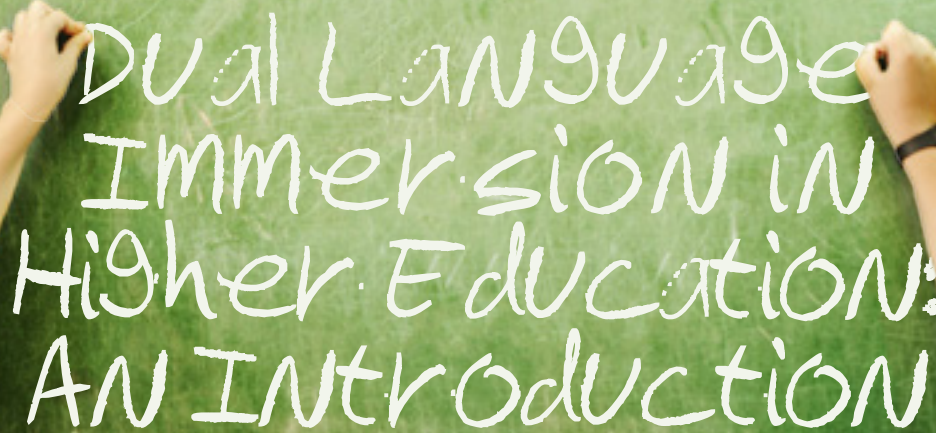 Dual Language
Immersion in
Higher Education:
An Introduction